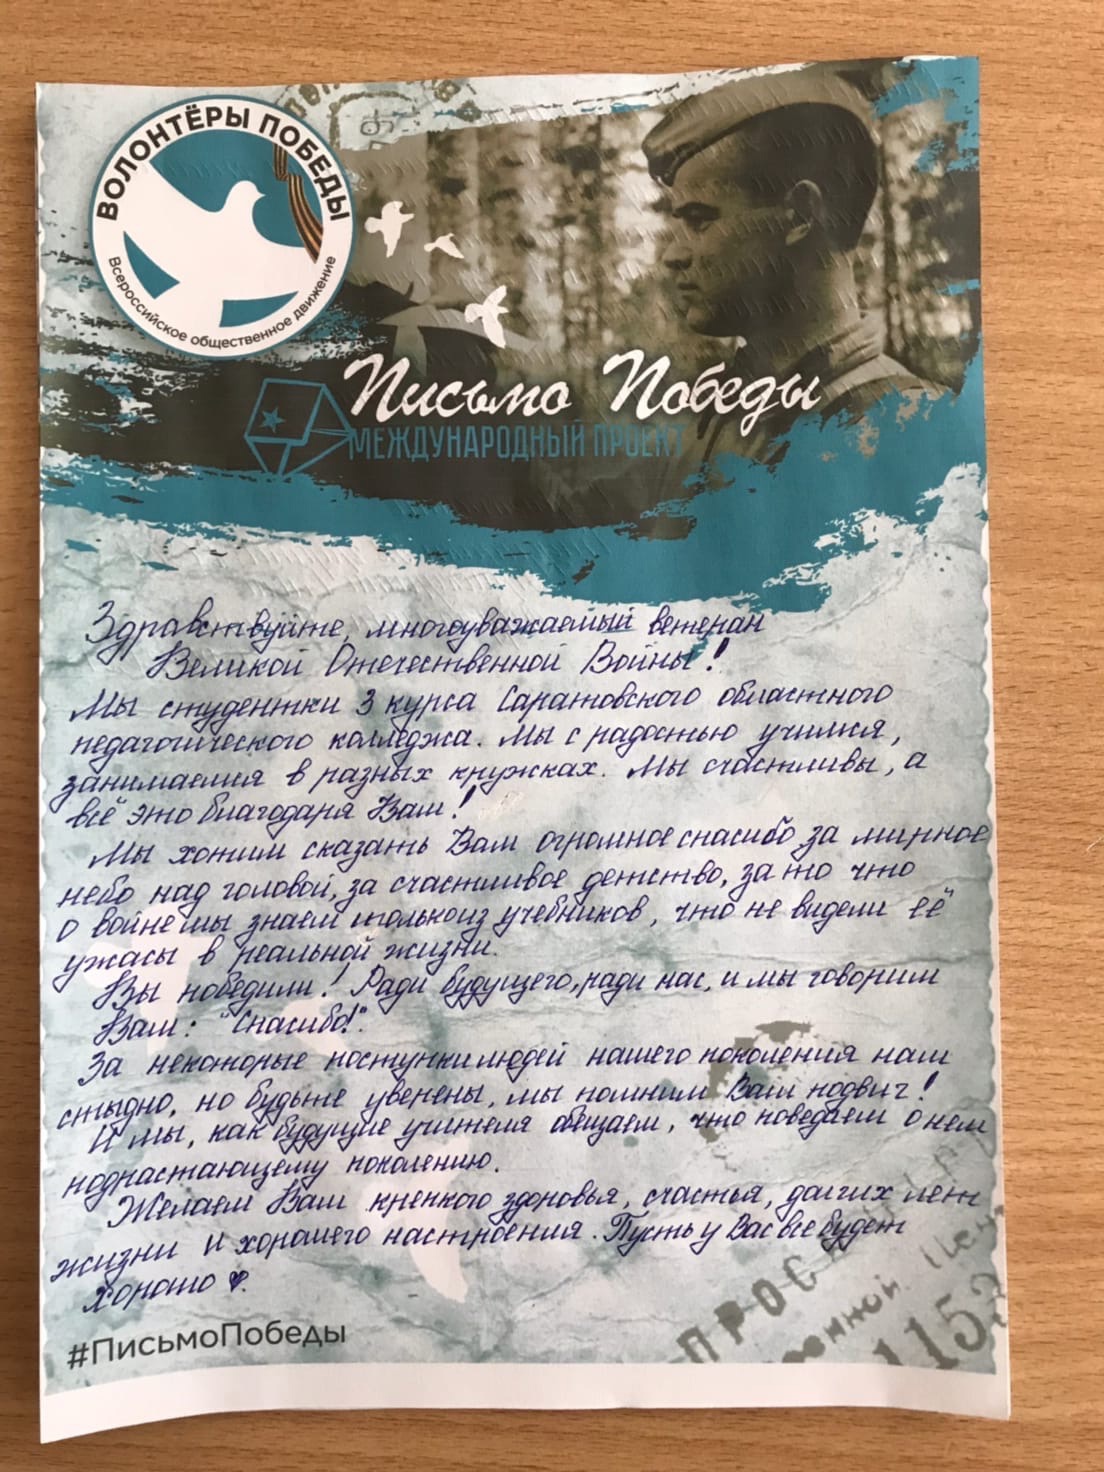 ВОЛОНТЁРЫ ПОБЕДЫ
Всероссийское общественное движение
Письмо Победы
МЕЖДУНАРОДНЫЙ ПРОЕКТ
Здравствуйте, многоуважаемый ветеран
Великой Отечественной Войны!
Мы студентки 3 курса Саратовского областного
педагогического колледжа. Мы с радостью учимся,
занимаемся в разных кружках. Мы счастливы, а
всё это благодаря Вам!
Мы хотим сказать Вам огромное спасибо за мирное
небо над головой, за счастливое детство, за то что
о войне мы знаем только из учебников, что не видели её
ужасы в реальной жизни.
Вы победили! Ради будущего, ради нас, и мы говорим
Вам: "Спасибо!".
За некоторые поступки людей нашего поколения нам
стыдно, но будьте уверены, мы помним Ваш подвиг!
И мы, как будущие учителя обещаем, что поведаем о нем
подрастающему поколению.
Желаем Вам крепкого здоровья, счастья, долгих лет
жизни и хорошего настроения. Пусть у Вас все будет
хорошо ♥.
#ПисьмоПобеды
ПРОС
1153